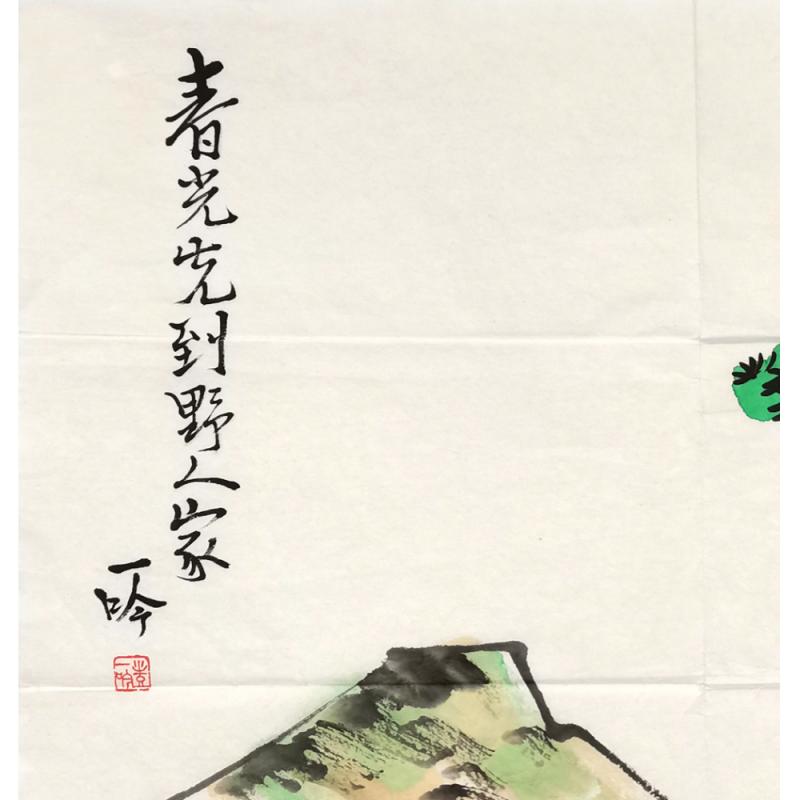 春光先到野人家
一吟